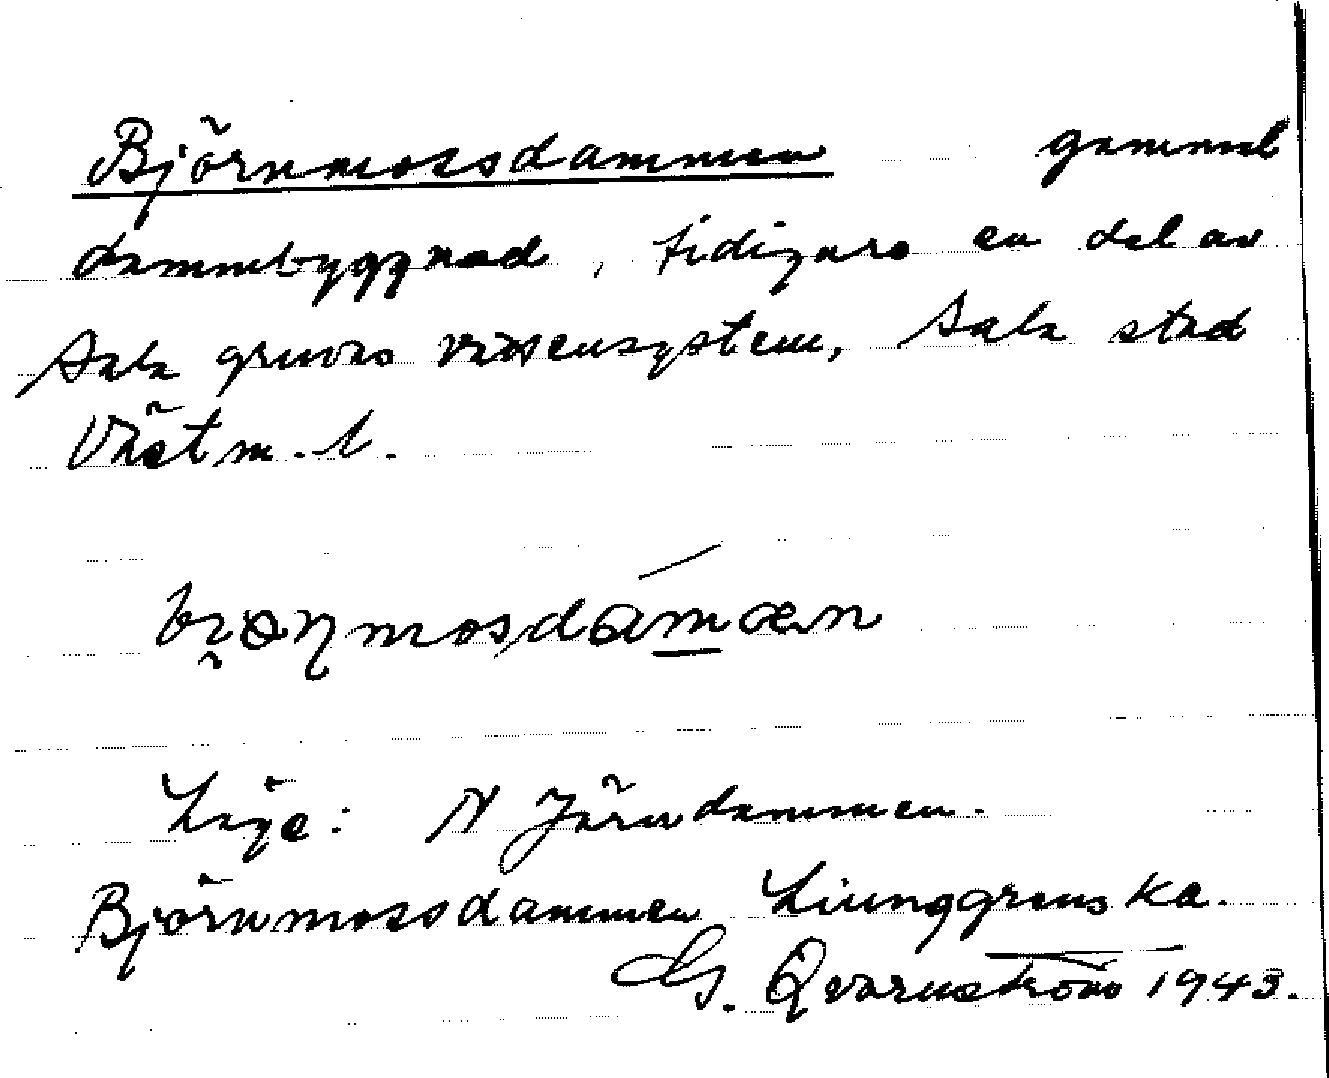 Björnmossdammen gammal
dammbyggnad, tidigare en del av
Sala gruvas vattensystem, Sala stad
Västm. l.
Läge: N Järndammen.
Björnmossdammen Liunggrens Ka.
G. Qvarnström 1943.